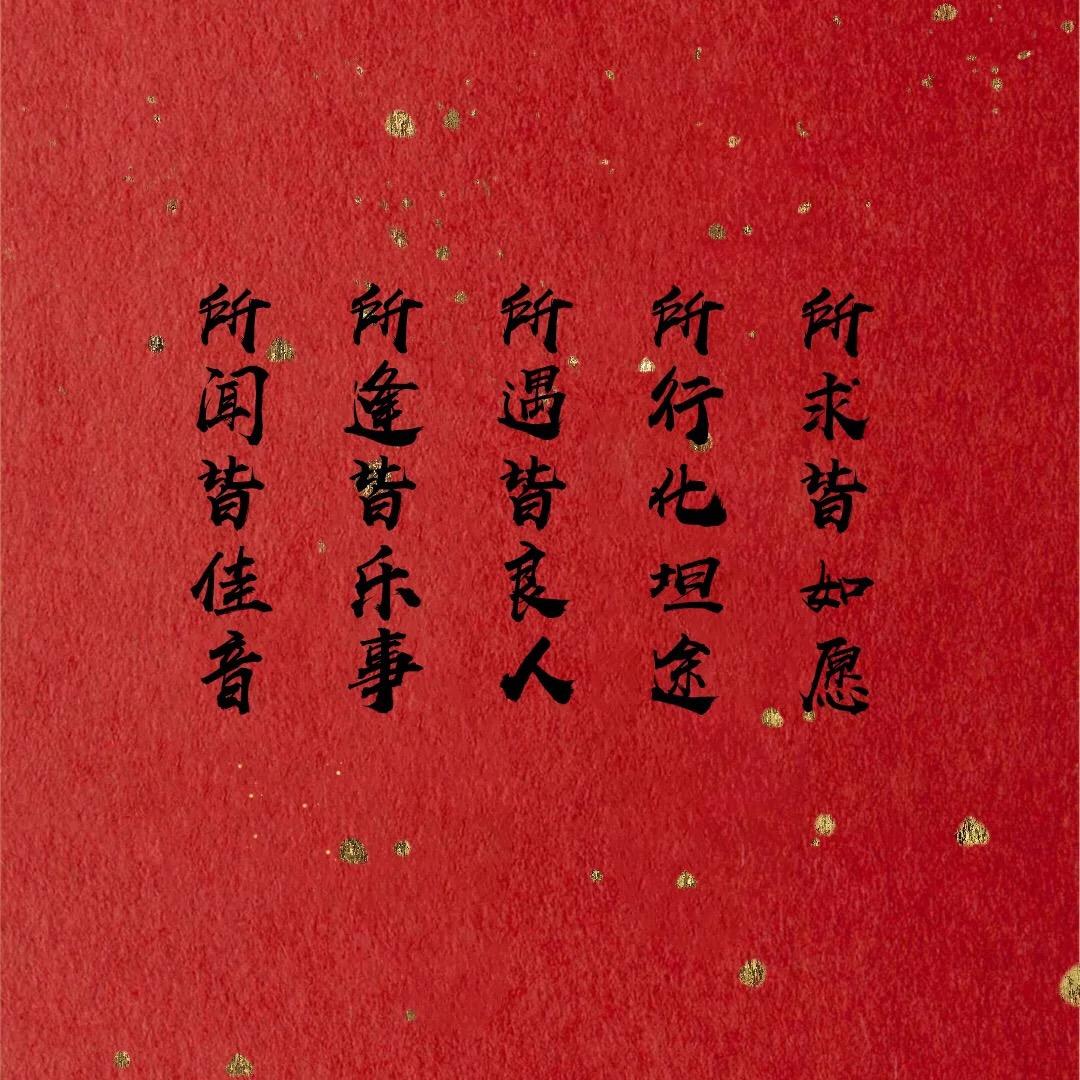 所求皆如愿
所行化坦途
所遇皆良人
所逢皆乐事
所闻皆佳音